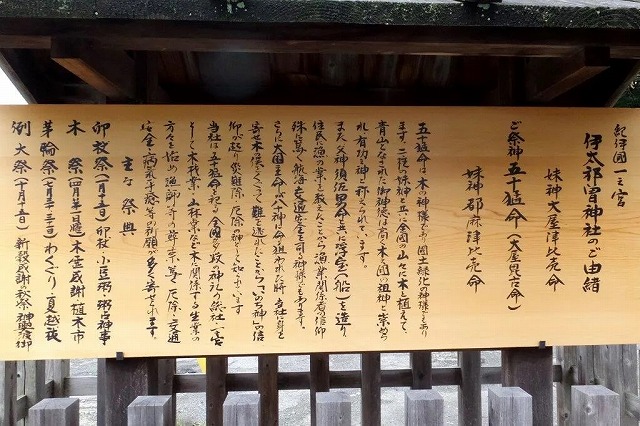 紀伊國一之宮
伊太祁曽神社のご由緒
妹神 大屋津比売命
ご祭神 五十猛命（大屋毘古命）
妹神 都麻津比売命
五十猛命は木の神様であり国土緑化の神様でもあり
ます。二柱の妹神と共に全国の山々に木を植えて
青山となされた御神徳は高く木の国の祖神と崇めら
れ有功の神と称えられています。
また父神須佐男命と共に浮宝（船）を造り
住民に漁の業を教えたことから漁業関係者の信仰
殊に篤く航海、交通安全を司る神様でもあります。
さらに大国主命が八十神に命を狙われた時当社に身を
寄せ木俣をくぐって難を逃れたことから「いのち神」の信
仰が起り災難除、厄除の神としても知られています
当社は五十猛命を祀る全国の多数の神社の総社、一の宮
として木材業、山林業など木に関係する生業の
方々を始め漁師の崇敬篤く厄除、交通
安全、病気平癒等の祈願が多く寄せられます。
主な祭典
卯杖祭（一月十五日）卯杖、小豆粥、粥占神事
木祭（四月第一日曜）木霊感謝、植木市
茅輪祭（七月三十、三十一日）わくぐり、夏越祓
例大祭（十月十五日）新穀感謝の秋祭、神輿渡御